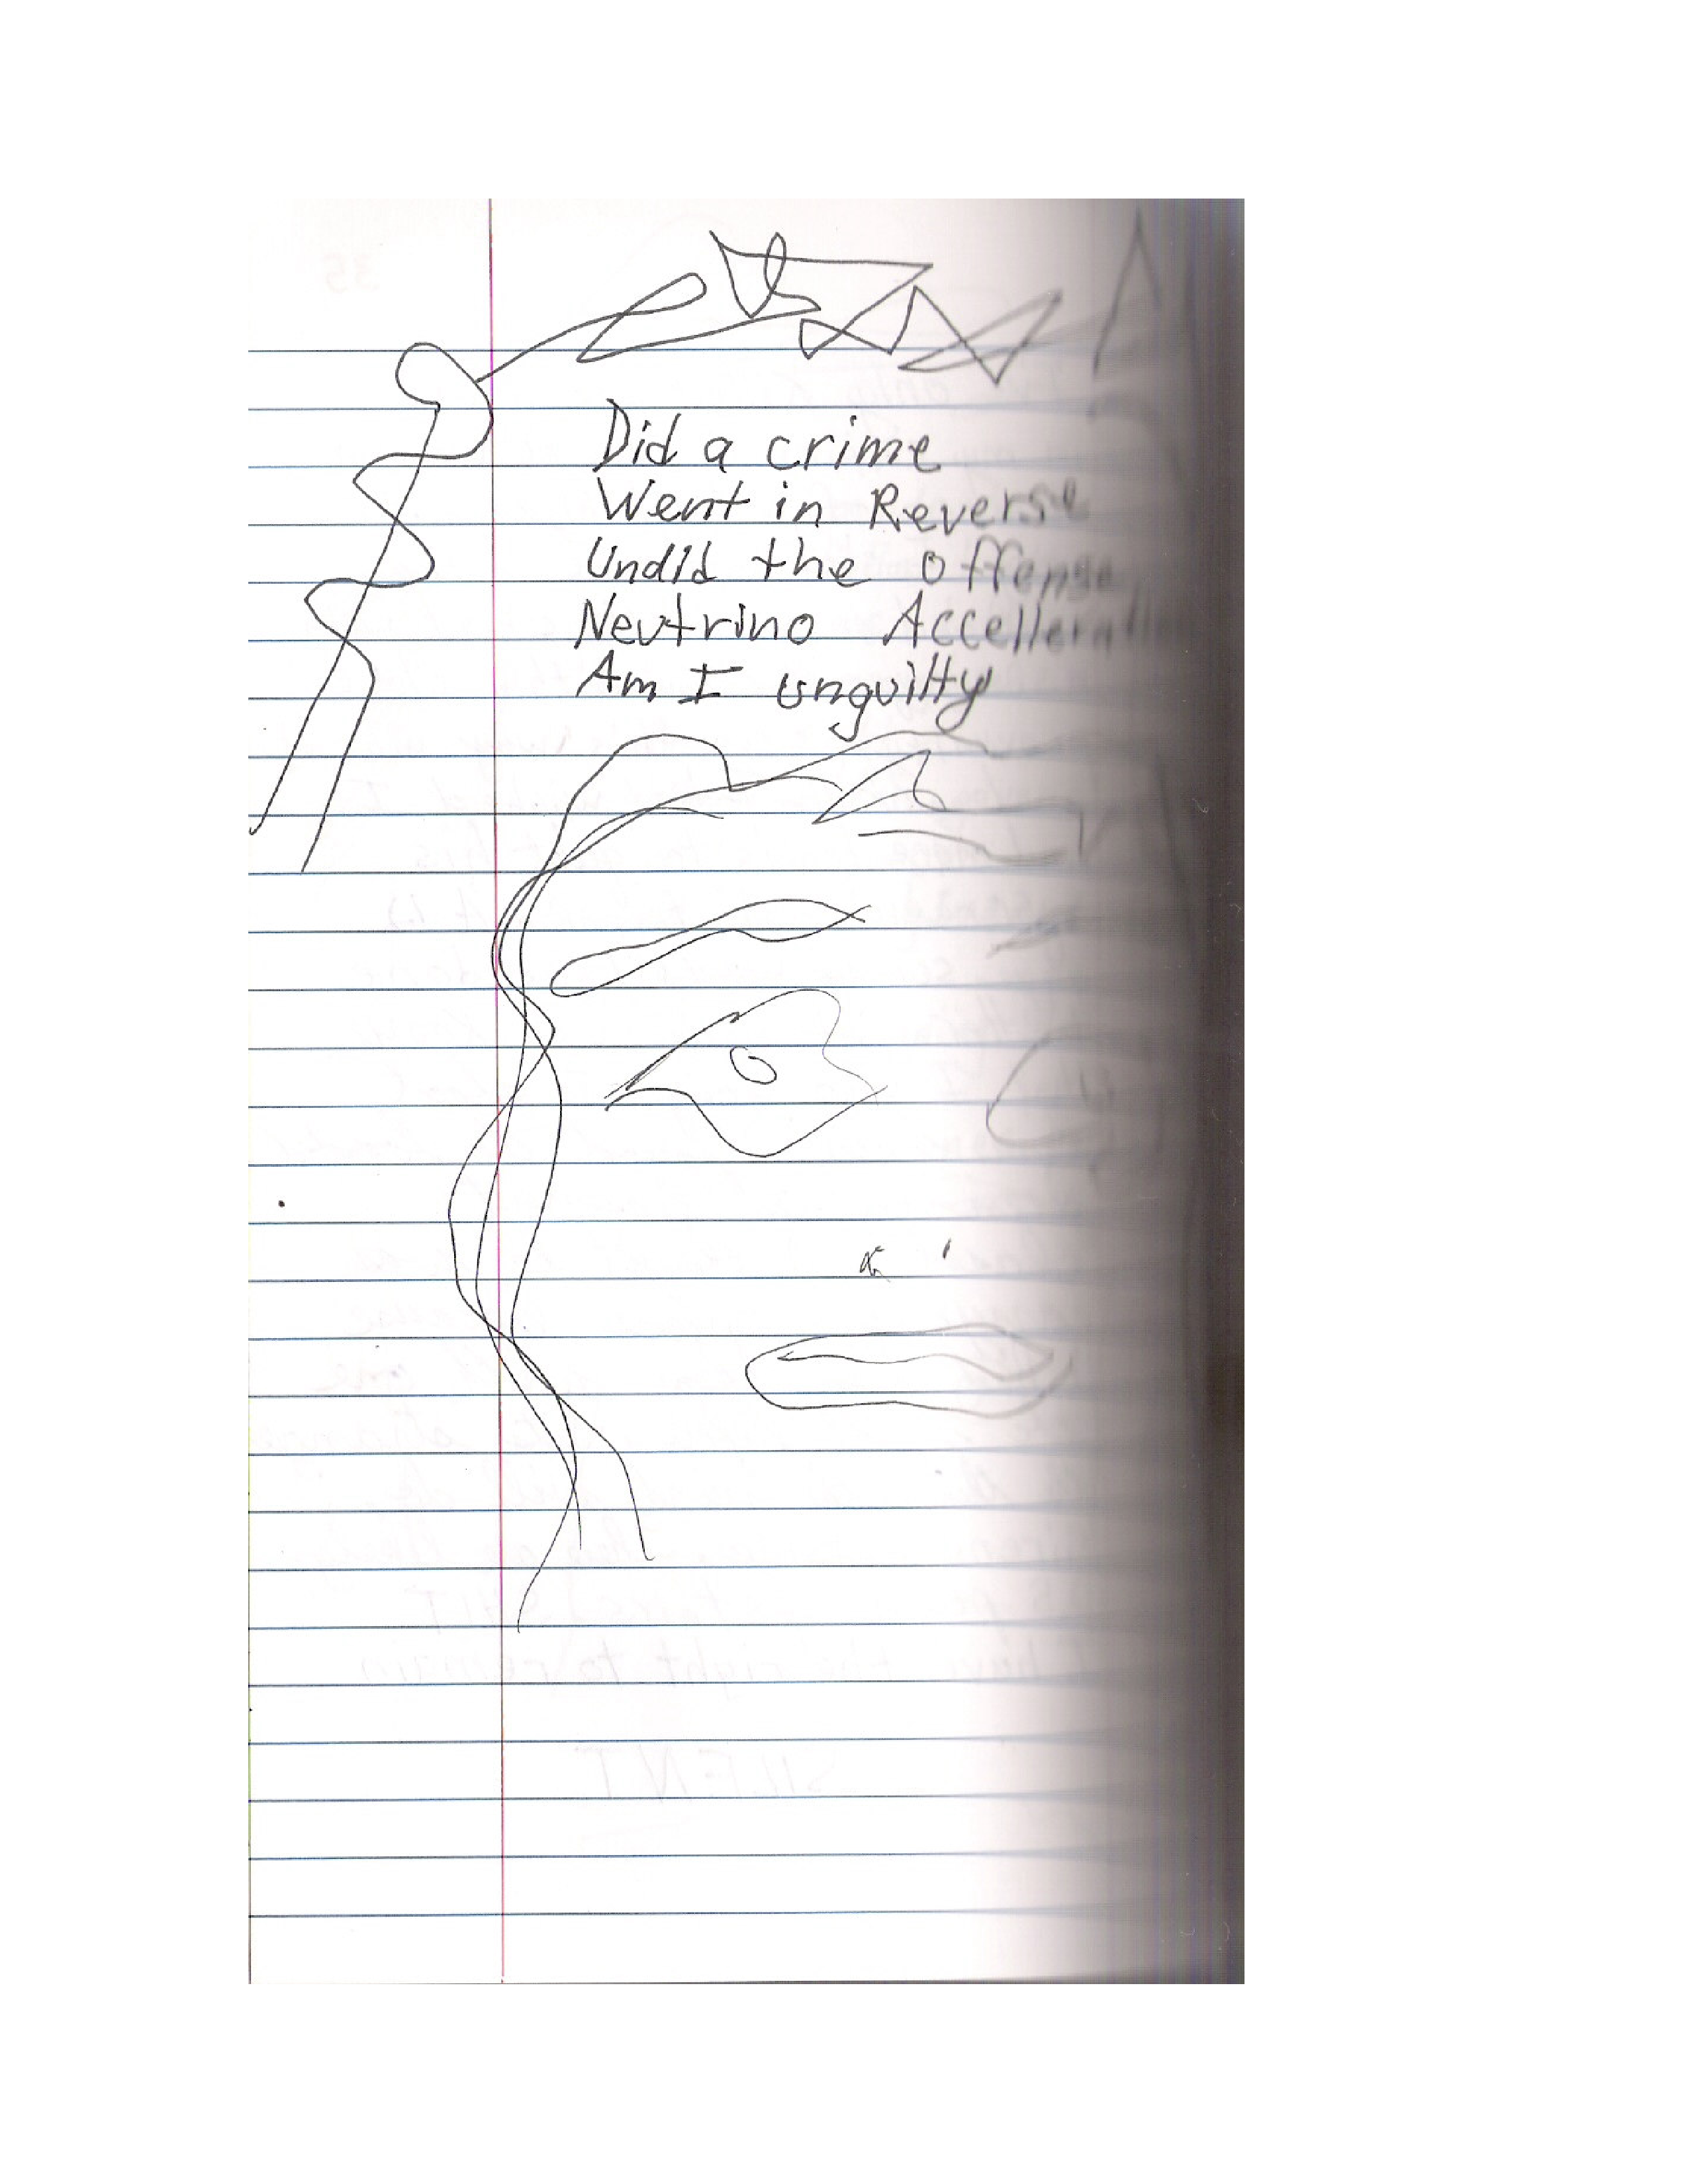 Did a crime
Went in Reverse
Undid the offense
Neutrino
Am I unguilty